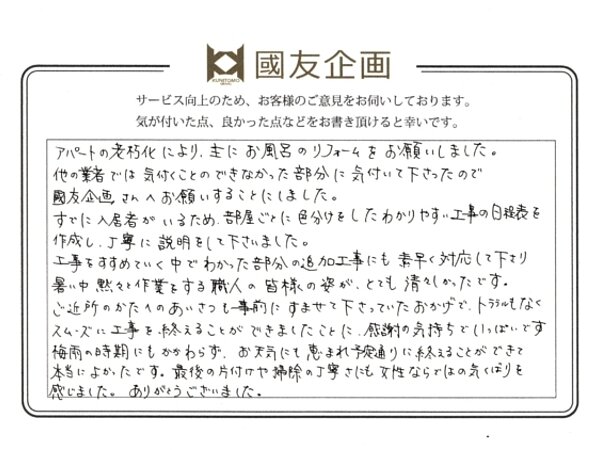 KUNITOMO
國友企画
サービス向上のため、お客様のご意見をお伺いしております。
気が付いた点、良かった点などをお書き頂けると幸いです。
アパートの老朽化により、主にお風呂のリフォームをお願いしました。
他の業者では気付くことのできなかった部分に気付いて下さったので
國友企画さんへお願いすることにしました。
すでに入居者がいるため、部屋ごとに色分けをしたわかりやすい工事の日程表を
作成し、丁寧に説明をして下さいました。
工事をすすめていく中でわかった部分の追加工事にも素早く対応して下さり
暑い中黙々と作業をする職人の皆様の姿が、とても清々しかったです。
ご近所のかたへのあいさつも事前にすませて下さっていたおかげで、トラブルもなく
スムーズに工事を終えることができましたことに、感謝の気持ちでいっぱいです
梅雨の時期にもかかわらず、お天気にも恵まれ予定通りに終えることができて
本当によかったです。最後の片付けや掃除の丁寧さにも女性ならではの気くばりを
感じました。ありがとうございました。